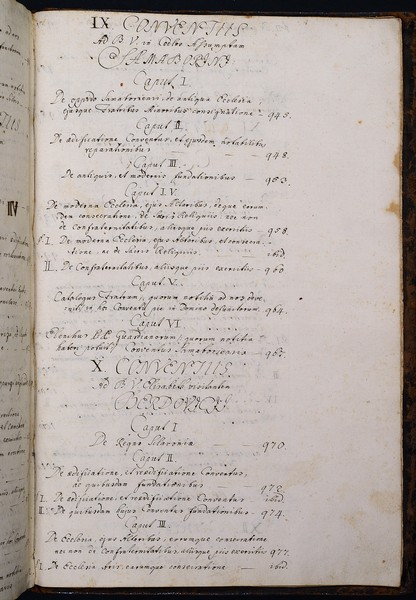 IX CONVENTUS
Ad B. V. in Coelos Assumptam
SAMABORINI
Caput I.
De oppido Samaboriensi, de antiqua Ecclesia,
ejusque Fratribus Minoribus consignatione - 945.
Caput II.
De aedificatione Conventus, et ejusdem notabilibus
reparationibus - 948.
Caput III.
De antiquis, et modernis fundationibus - 953.
Caput IV.
De moderna Ecclesia, ejus Altaribus, deque eorum-
dem consecratione, de Reliquiis, nec non
de Confraternitatibus, aliisque piis exercitiis - 958.
§ I. De moderna Ecclesia, ejus Altaribus, et consecra-
tione, ac de Sacris Reliquiis. ibid.
II. De Confraternitatibus, aliisque piis exercitiis - 960
Caput V.
Catalogus Fratrum, quorum notitia ad nos deve-
nit, in hoc Conventu pie in Domino defunctorum. 964.
Caput VI
Elenchus P.P. Guardianorum, quorum notitia
haberi potuit, Conventus Samaboriensis - 967.
X. CONVENTUS
Ad B. V. Elisabeth visitantem
Caput I
De Regno Slavonia - 970.
Caput II.
De aedificatione, et reaedificatione Conventus,
ac quibusdam fundationibus - 973.
I. De aedificatione, et reaedificatione Conventus - ibid.
II. De quibusdam hujus Conventus fundationibus - 974.
Caput III.
De Ecclesia, ejus Altaribus, eorumque consecratione
nec non de Confraternitatibus, aliisque piis exercitiis 977.
I. De Ecclesia Aris, earumque consecratione - ibid